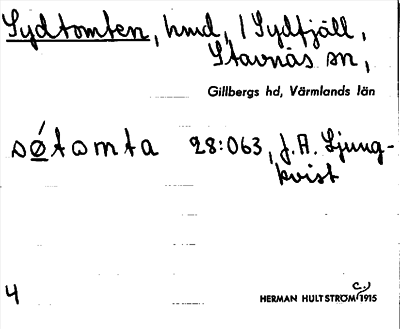 Sydtomten, hmd, i Sydfjäll,
Stavnäs sn,
Gillbergs hd, Värmlands län
søtomta 28:063, J. A. Ljung-
kvist
4
c:)
HERMAN HULTSTRÖM 1915